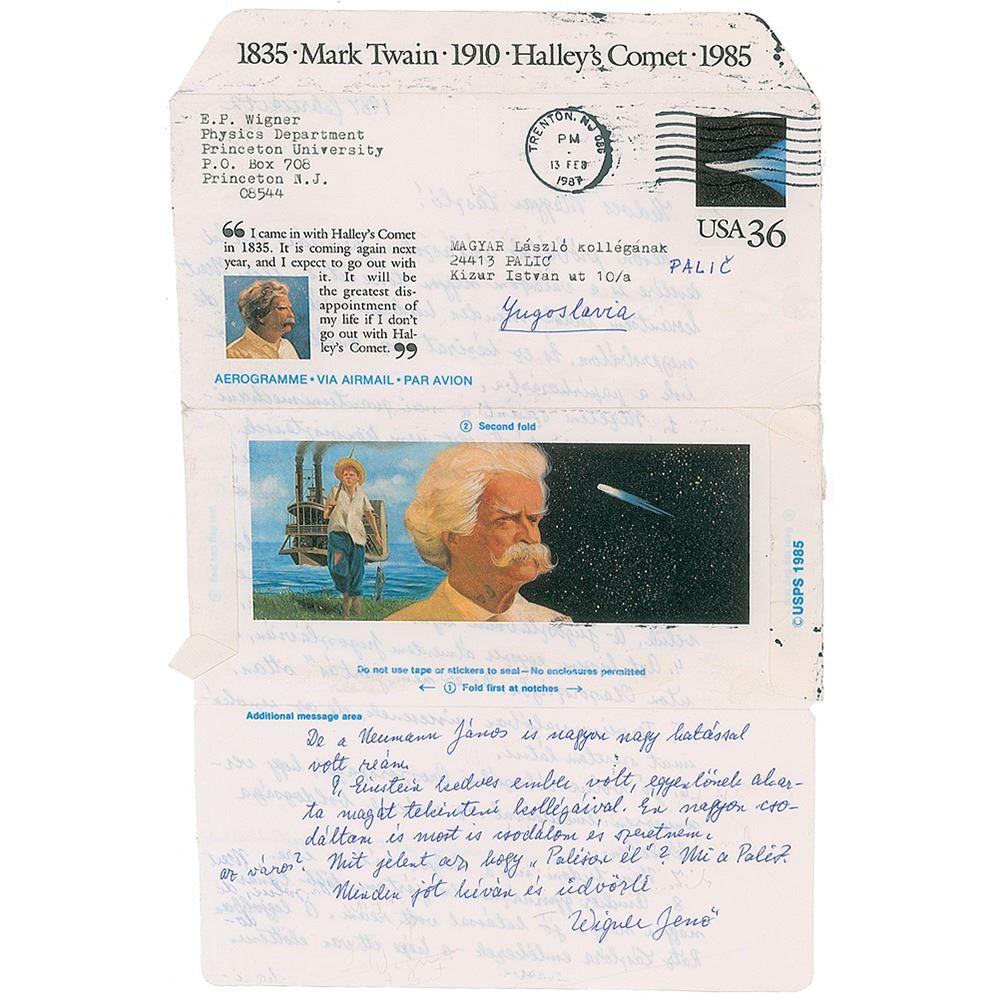 1835 · Mark Twain · 1910 · Halley's Comet · 1985
E.P. Wigner
Physics Department
Princeton University
P.O. Box 708
Princeton N.J.
08544
TRENTON, NJ 086
PM
13 FEB
1987
USA 36
“ I came in with Halley's Comet
in 1835. It is coming again next
year, and I expect to go out with
it. It will be
the greatest dis-
appointment of
my life if I don't
go out with Hal-
ley's Comet. ”
MAGYAR László kollégának
24413 PALIC
Kizur István ut 10/a
PALIČ
Yugoslavia
AEROGRAMME • VIA AIRMAIL • PAR AVION
② Second fold
© USPS 1985
Do not use tape or stickers to seal — No enclosures permitted
← ① Fold first at notches →
Additional message area
De a Neumann János is nagyon nagy hatással
volt reám.
9, Einstein kedves ember volt, egyenlőnek akar-
ta magát tekinteni kollégaival. Én nagyon cso-
dáltam is most is csodálom és szeretném.
Mit jelent az, hogy „Palicson él"? Mi a Palics?
az város?
Minden jót kíván és üdvözli
Wigner Jenő